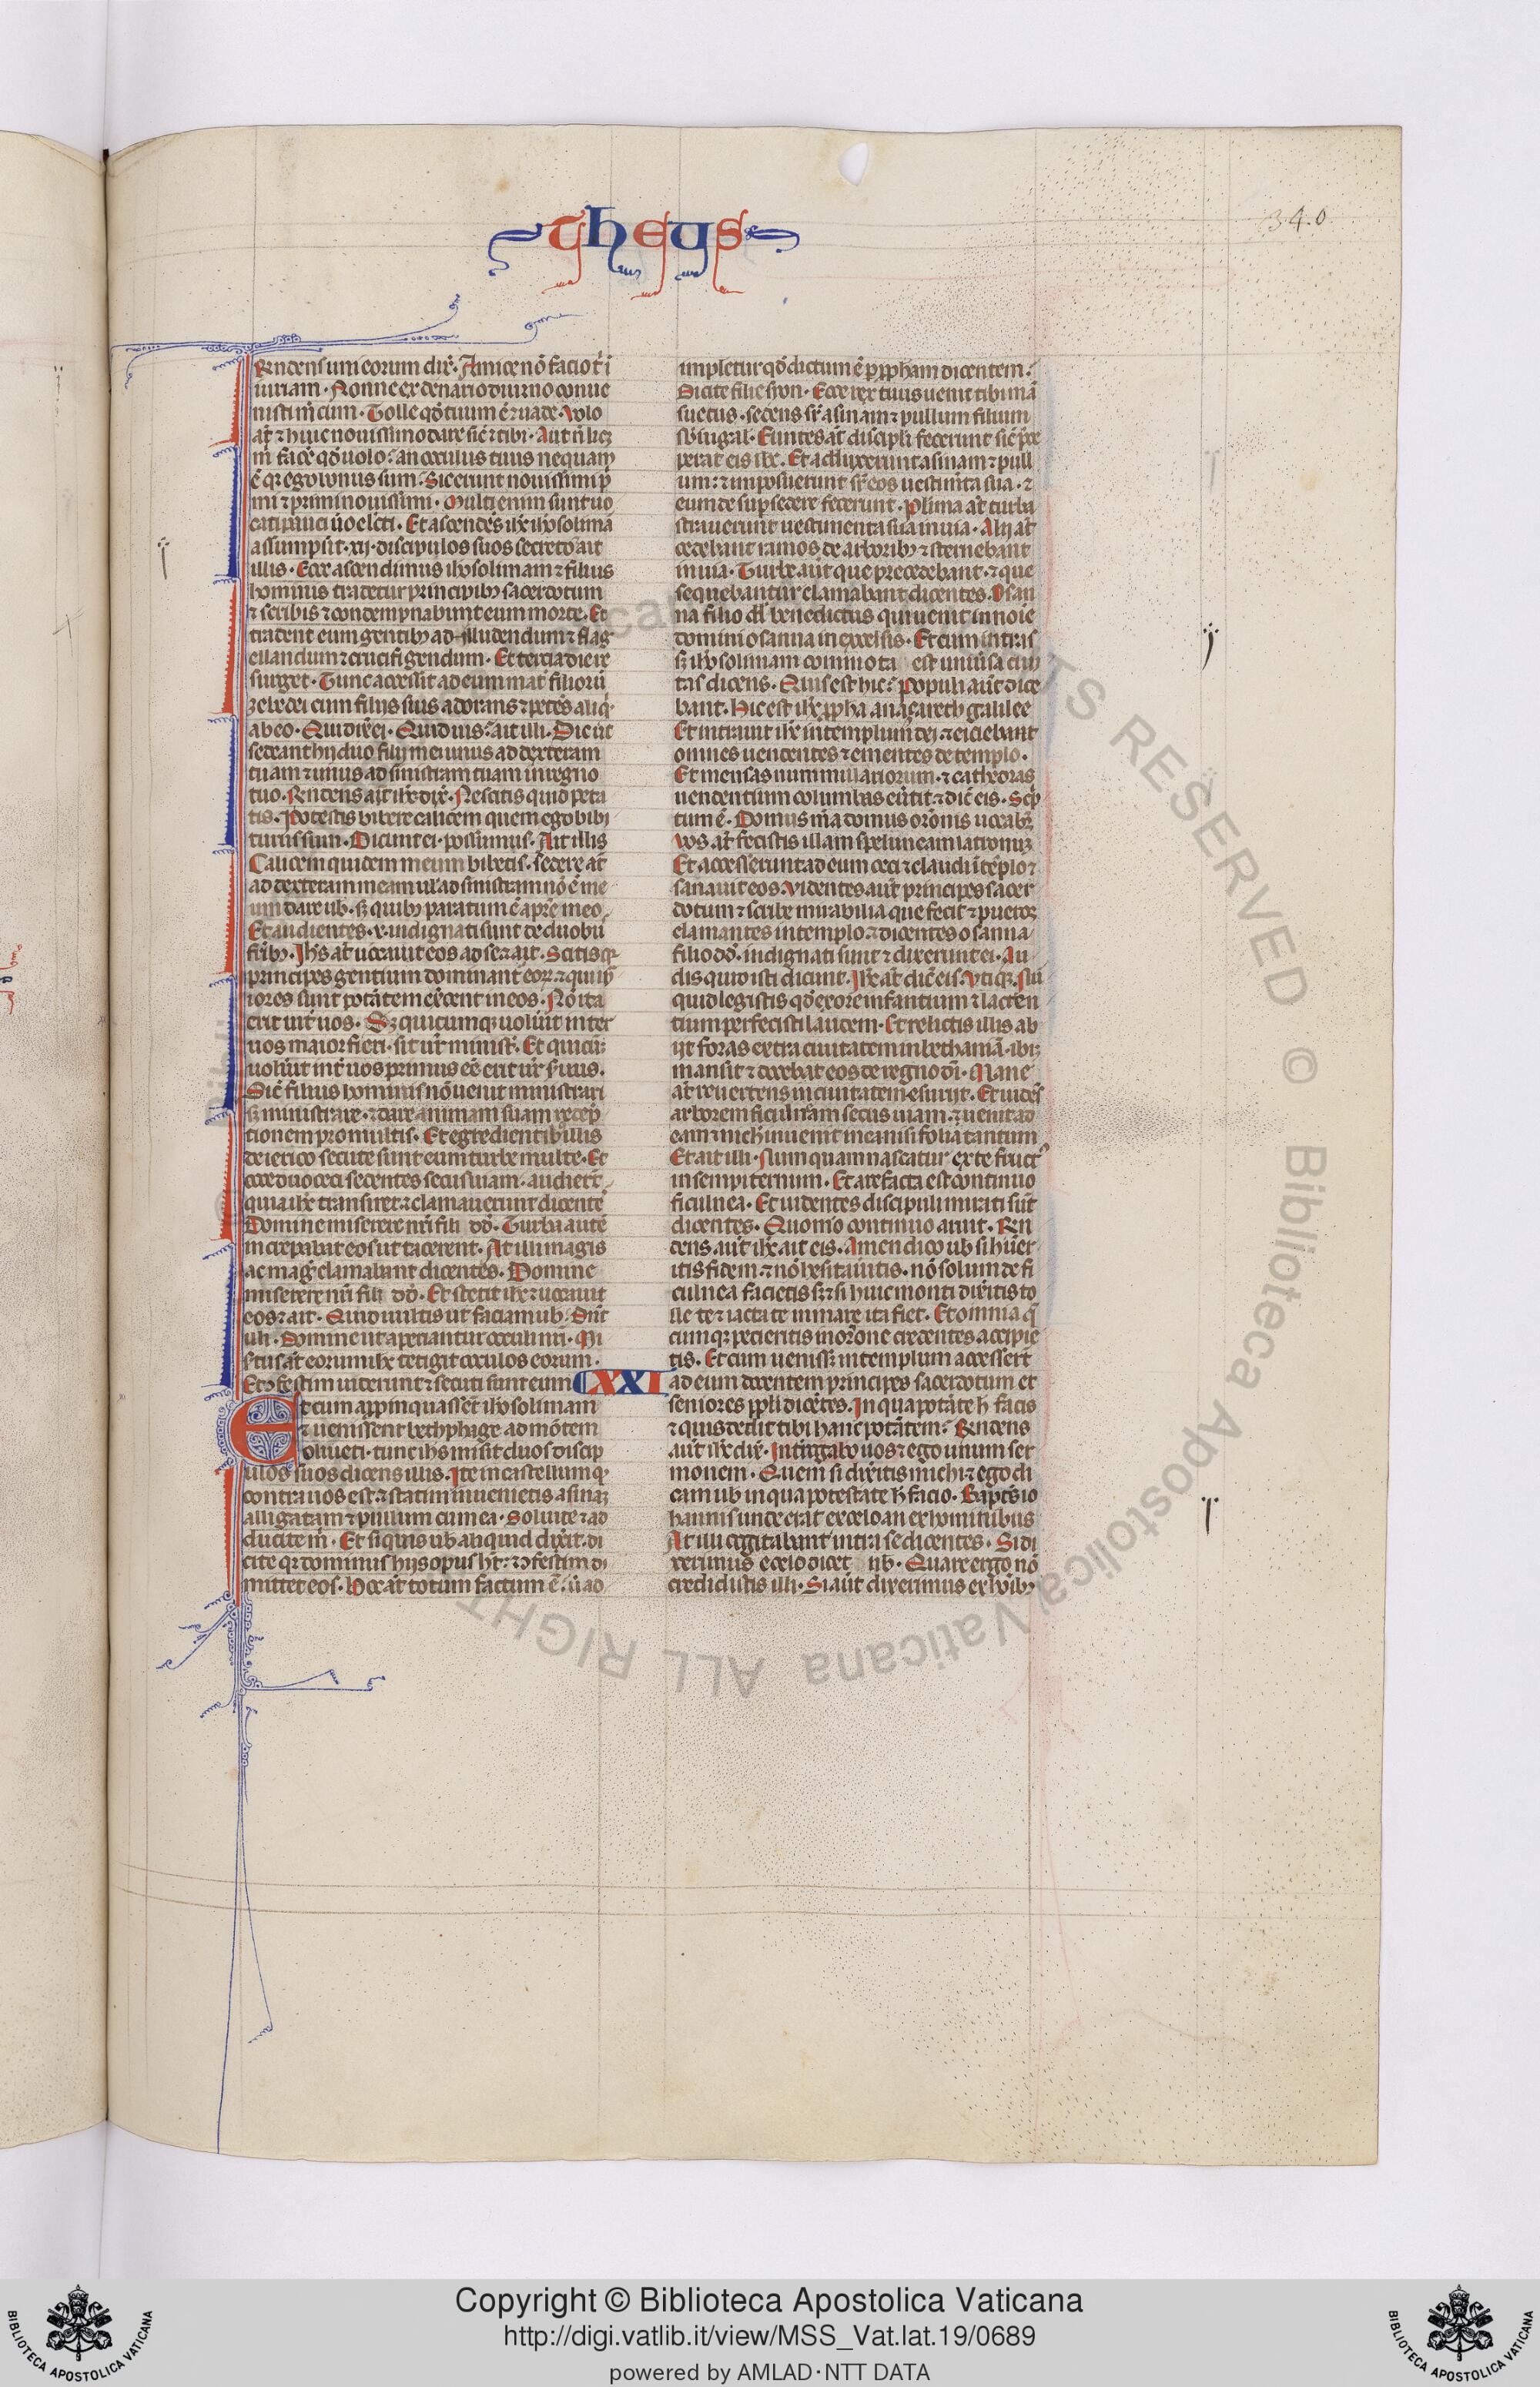 theus
340
Rñdens uni eorum dix̾. Amice nō facio t̾ i
iuriam. Nonne ex denario diurno conue
nisti m̄cum. Tolle qd̄ tuum ē ⁊ uade. Volo
at̄ ⁊ huic nouissimo dare sic̄ ⁊ tibi. Aut n̄ licꝫ
m̄ face̾ qd̄ uolo? an oculus tuus nequam
ē qꝛ ego bonus sum? Sic erunt nouissimi p̾
mi ⁊ primi nouissimi. Multi enim sunt uo
cati pauci ūo elc̄ti. Et ascendēs ih̄c ih̾osolimā
assumpsit .xij. discipulos suos secreto ⁊ ait
illis. Ecce ascendimus ih̾osolimam ⁊ filius
hominis tradetur principibꝰ sacerdotum
⁊ scribis ⁊ condempnabunt eum morte. Et
tradent eum gentibꝰ ad illudendum ⁊ flag
ellandum ⁊ crucifigendum. Et tercia die re
surget. Tunc accessit ad eum mat̾ filiorū
zebedei cum filiis suis adorans ⁊ petēs aliq̇
ab eo. Qui dix̾ ei. Quid uis? ait illi. Dic ut
sedeant hij duo filij mei unus ad dexteram
tuam ⁊ unus ad sinistram tuam in regno
tuo. Rñdens aūt ih̄c dix̾. Nescitis quid peta
tis. Potestis bibere calicem quem ego bibi
turus sum. Dicunt ei. possumus. Ait illis
Calicem quidem meum bibetis. sedere at̄
ad dexteram meam ul̾ ad sinistram nō ē me
um dare uob̄. sꝫ quibꝰ paratum ē a pr̄e meo.
Et audientes .x. indignati sunt de duobꝰ
fr̄ibꝰ. Ih̄s at̄ uocauit eos ad se ⁊ ait. Scitis qꝛ
principes gentium dominant̾ eoꝝ ⁊ qui
iores sunt potātem ex̾cent in eos. Nō ita
erit int̾ uos. Sꝫ quicumqꝫ uolu̾it inter
uos maior fieri. sit ur̄ minist̾. Et quicūqꝫ
uolu̾it int̾ uos primus eē erit ur̄ s̾uus.
Sic̄ filius hominis nō uenit ministrari
sꝫ ministrare. ⁊ dare animam suam redep̄
tionem pro multis. Et egredientibꝰ illis
de ierico secute sunt eum turbe multe. Et
ecce duo ceci sedentes secus uiam. audier̄t
quia ih̄c transiret. ⁊ clamauerunt dicentē
Domine miserere nr̄i fili dd̄. Turba autē
increpabat eos ut tacerent. At illi magis
ac mag̾ clamabant dicentes. Domine
miserere nr̄i fili dd̄. Et stetit ih̄c ⁊ uocauit
eos ⁊ ait. Quid uultis ut faciam uob̄. Dn̄t
illi. Domine ut aperiantur oculi nr̄i. Mi
s̾tus at̄ eorum ih̄c tetigit oculos eorum.
Et ꝯfestim uiderunt ⁊ secuti sunt eum XXI
Et cum appinquassēt ih̾osolimam
⁊ uenissent bethphage ad mōtem
oliueti. tunc ih̄s misit duos discip
ulos suos dicens illis. Ite in castellum qͩ
contra uos est. ⁊ statim inuenietis asinaꝫ
alligatam ⁊ pullum cum ea. Soluite ⁊ ad
ducite m̄. Et si quis uob̄ aliquid dix̾it. di
cite qꝛ dominus hijs opus h̄t. ⁊ ꝯfestim di
mittet eos. Hoc at̄ totum factum ē. ut ad
impletur qd̄ dictum ē ꝑ ꝓpham dicentem.
Dicite filie syon. Ecce rex tuus uenit tibi mā
suetus. sedens sr̄ asinam ⁊ pullum filium
sb̾iugal̾. Euntes at̄ discipli fecerunt sic̄ p̾ce
perat eis ih̄c. Et adduxerunt asinam ⁊ pull
um: ⁊ imposuerunt sr̄ eos uestim̄ta sua. ⁊
eum desup sedere fecerunt. Plima at̄ turba
strauerunt uestimenta sua in uia. Alij at̄
cedebant ramos de arboribꝰ ⁊ sternebant
in uia. Turbe aūt que precedebant. ⁊ que
sequebantur clamabant dicentes. Osan
na filio dd̄ benedictus qui uenit in noīe
domini osanna in excelsis. Et cum intras
sꝫ ih̾osolimam commota est uniu̾sa ciui
tas dicens. Quis est hic? Populi aūt dice
bant. Hic est ih̄c ꝓpha a naçareth galilee
Et intrauit ih̄c in templum dei. ⁊ eiciebant
omnes uendentes ⁊ ementes de templo.
Et mensas nummulariorum. ⁊ cathedras
uendentium columbas eu̾tit. ⁊ dic̄ eis. Scp̄
tum ē. Domus mīa domus or̄onis uocabꝫ.
Vos at̄ fecistis illam speluncam latronuꝫ
Et accesserunt ad eum ceci ⁊ claudi ī tēplo ⁊
sanauit eos. Videntes aūt principes sacer
dotum ⁊ scribe mirabilia que fecit ⁊ pueroꝫ
clamantes in templo ⁊ dicentes osanna
filio dd̄. indignati sunt ⁊ dixerunt ei. Au
dis quid isti dicunt. Ih̄c at̄ dic̄ eis. Vtiqꝫ. nū
quid legistis qd̄ ex ore infantium ⁊ lacten
tium perfecisti laudem. Et relictis illis ab
ijt foras extra ciuitatem in bethaniā. ibiqꝫ
mansit ⁊ docebat eos de regno dī. Mane
at̄ reuertens in ciuitatem esurijt. Et uidēs
arborem ficulneam secus uiam. ⁊ uenit ad
eam ⁊ nichil inuenit in ea nisi folia tantum
Et ait illi. Numquam nascatur ex te fruct̾
in sempiternum. Et arefacta est continuo
ficulnea. Et uidentes discipuli mirati sūt
dicentes. Quom̊ continuo aruit. Rñ
dens aūt ih̄c ait eis. Amen dico uob̄ si h̾uer
itis fidem. ⁊ nō hesitau̾itis. nō solum de fi
culnea facietis sꝫ ⁊ si huic monti dix̾itis to
lle te ⁊ iacta te in mare ita fiet. Et omnia q̄
cumqꝫ pecieritis in or̄one credentes accipie
tis. Et cum uenissꝫ in templum accesserūt
ad eum docentem principes sacerdotum et
seniores ppli dicētes. In qua potāte h̄ facis
⁊ quis dedit tibi hanc potātem? Rñdens
aūt ih̄c dix̾. Int̾rogabo uos ⁊ ego unum ser
monem. Quem si dix̾itis michi ⁊ ego di
cam uob̄ in qua potestate h̄ facio. Baptism̄
iohannis unde erat e celo an ex hominibus
At illi cogitabant intra se dicentes. Si di
xerimus e celo dicet nob̄. Quare ergo nō
credidistis illi. Si aūt dixerimus ex ho̾ibꝰ
Copyright © Biblioteca Apostolica Vaticana
http://digi.vatlib.it/view/MSS_Vat.lat.19/0689
powered by AMLAD·NTT DATA
BIBLIOTECA APOSTOLICA VATICANA
BIBLIOTECA APOSTOLICA VATICANA